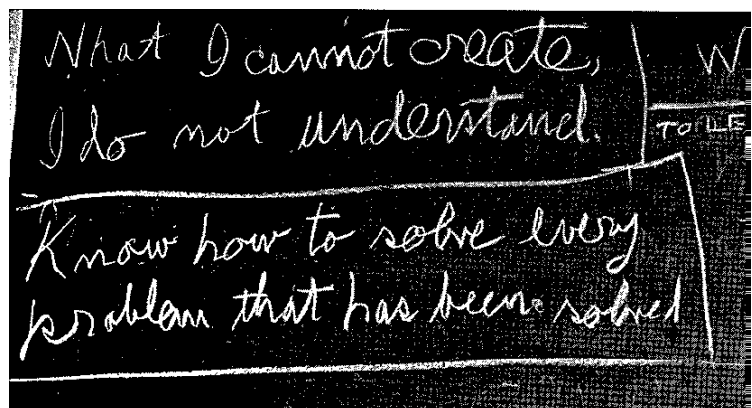 What I cannot create,
I do not understand.
Know how to solve every
problem that has been solved
TO LE